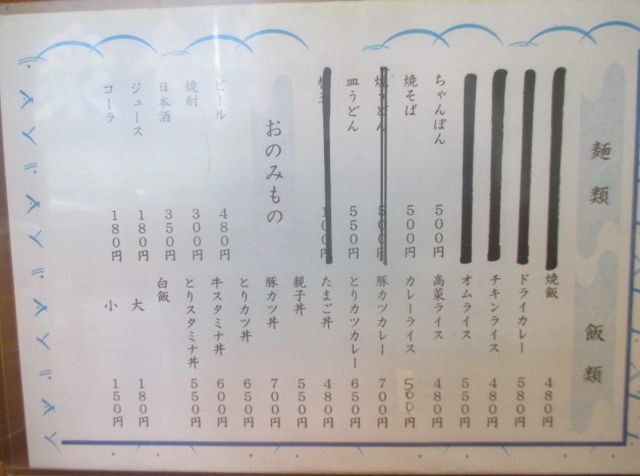 麺類
ちゃんぽん 500円
焼そば 500円
焼うどん 500円
皿うどん 550円
替玉 100円
おのみもの
ビール 480円
焼酎 300円
日本酒 350円
ジュース 180円
コーラ 180円
飯類
焼飯 480円
ドライカレー 580円
チキンライス 480円
オムライス 550円
高菜ライス 480円
カレーライス 500円
豚カツカレー 700円
とりカツカレー 650円
たまご丼 480円
親子丼 550円
豚カツ丼 700円
とりカツ丼 650円
牛スタミナ丼 600円
とりスタミナ丼 550円
白飯
大 180円
小 150円